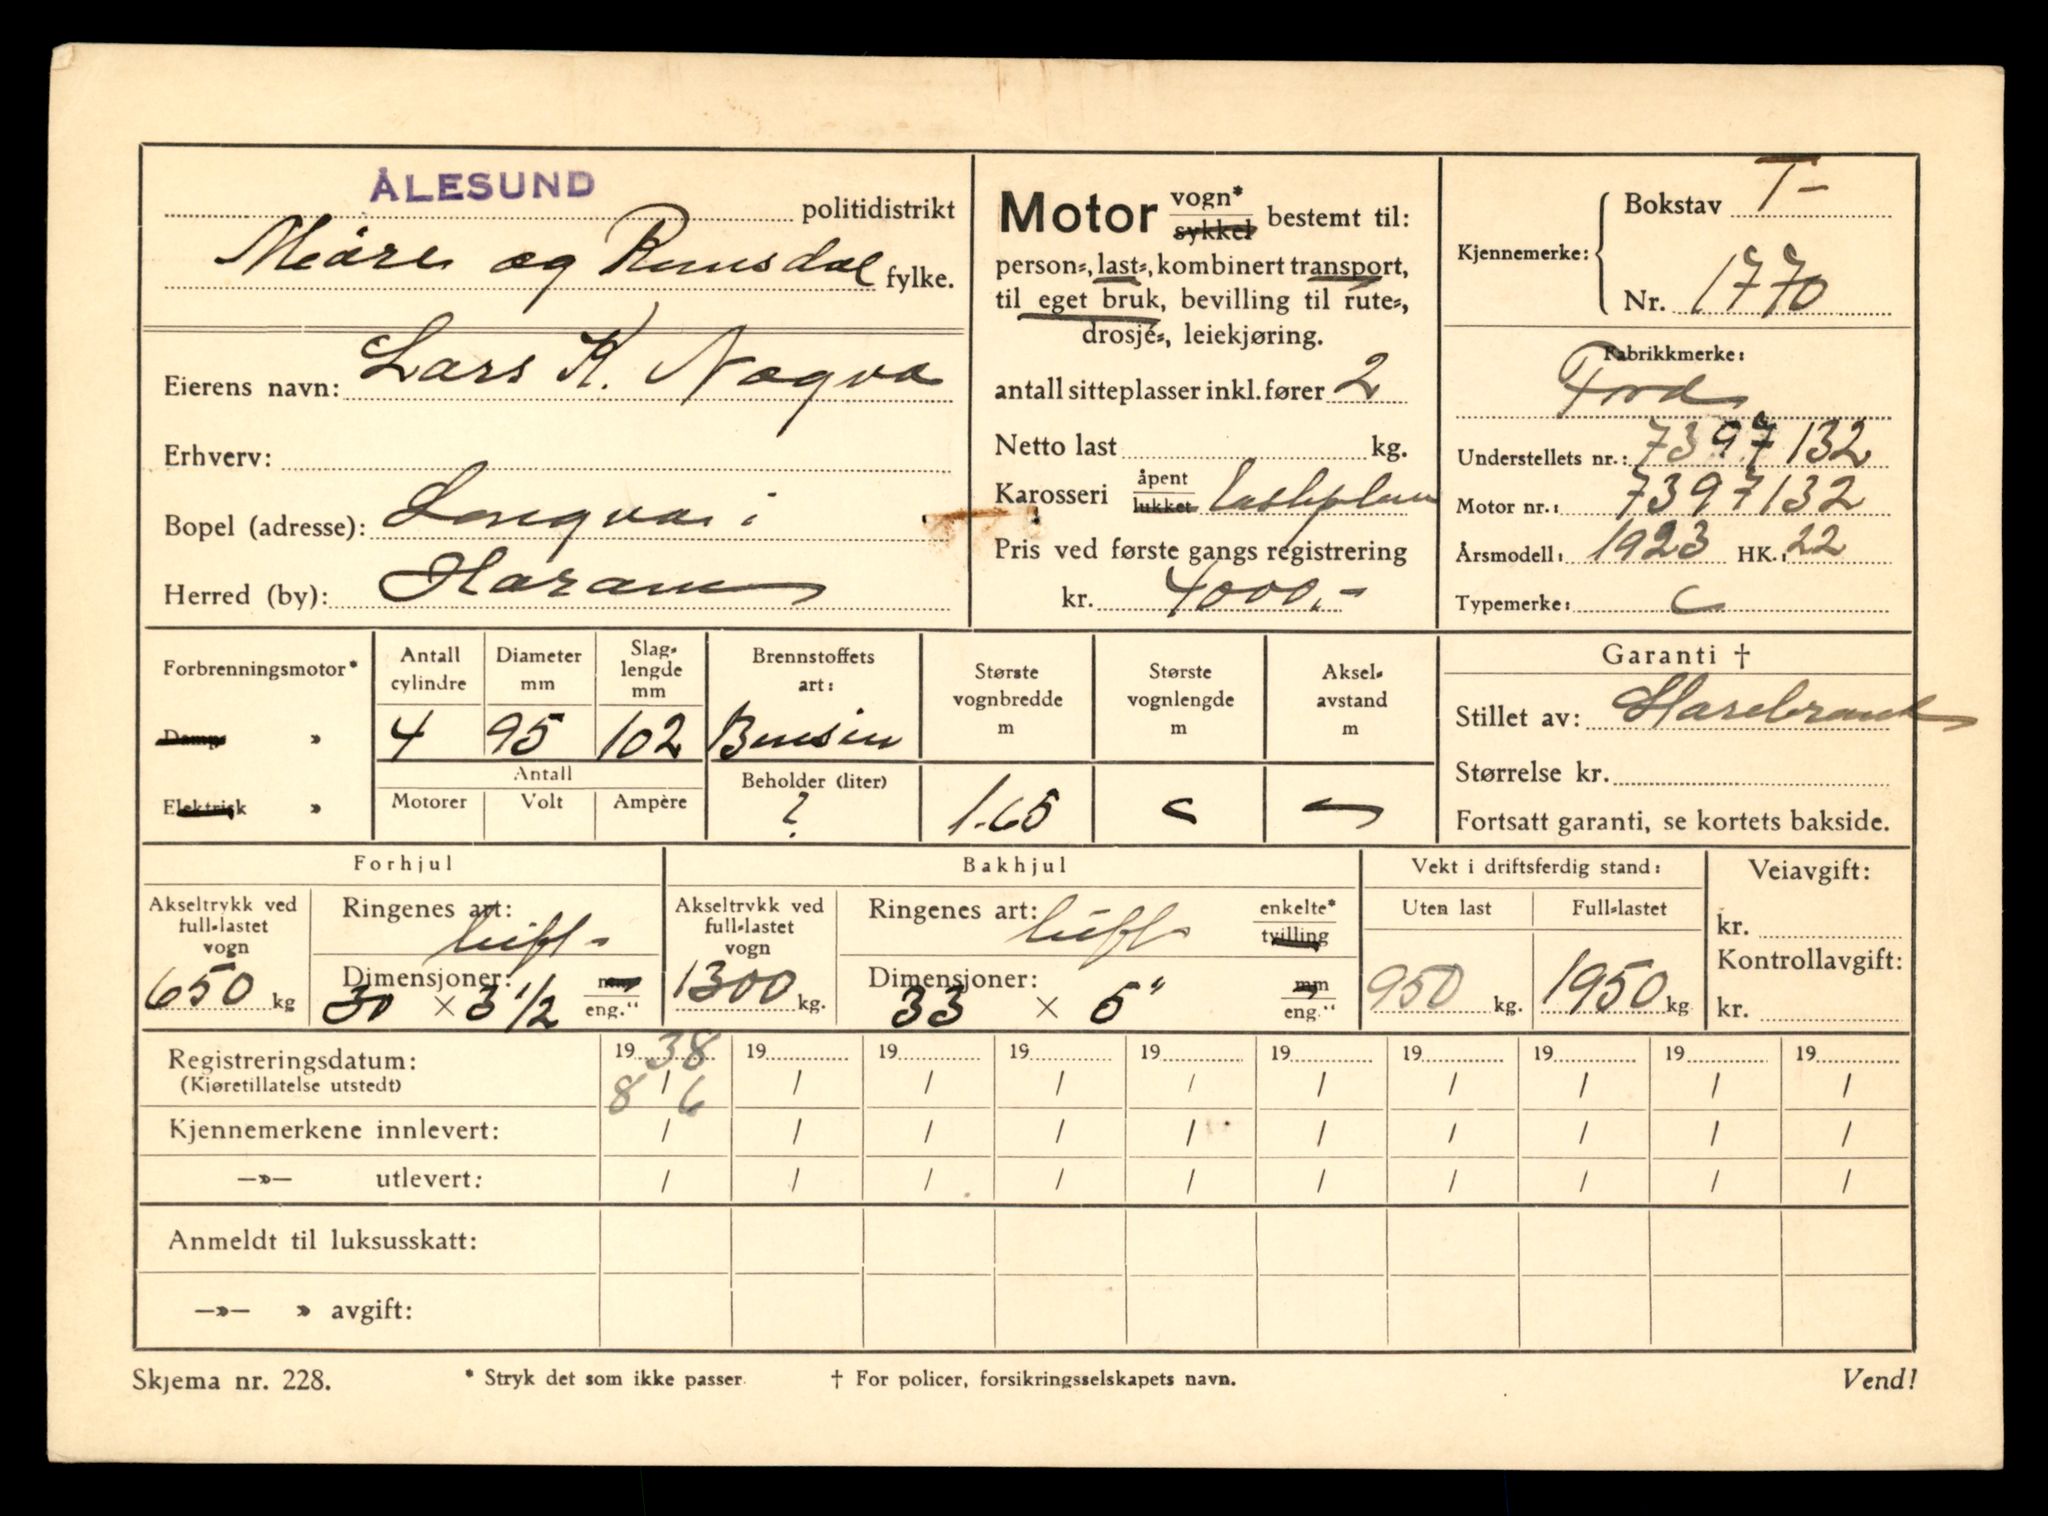 ÅLESUND politidistrikt
Möre og Romsdal fylke.
Eierens navn: Lars K. Nogva
Erhverv:
Bopel (adresse): Longva i
Herred (by): Haram
Motor vogn* sykkel bestemt til:
person-, last-, kombinert transport,
til eget bruk, bevilling til rute-,
drosje-, leiekjøring.
antall sitteplasser inkl. fører 2
Netto last kg.
Karosseri åpent lukket lasteplan
Pris ved første gangs registrering
kr. 4000.-
Kjennemerke: Bokstav T-
Nr. 1770
Fabrikkmerke:
Ford
Understellets nr.: 7397132
Motor nr.: 7397132
Årsmodell: 1923 HK.: 22
Typemerke: C
Forbrenningsmotor*
Damp »
Elektrisk »
Antall cylindre Diameter mm Slaglengde mm
4 95 102
Antall
Motorer Volt Ampère
Brennstoffets art:
Bensin
Beholder (liter)
?
Største vognbredde m
1.65
Største vognlengde m
Akselavstand m
Garanti †
Stillet av:
Størrelse kr.
Fortsatt garanti, se kortets bakside.
Forhjul
Akseltrykk ved full-lastet vogn
650 kg
Ringenes art: luft
Dimensjoner:
30 × 3 1/2 mm eng."
Bakhjul
Akseltrykk ved full-lastet vogn
1300 kg.
Ringenes art: luft enkelte* tvilling
Dimensjoner:
33 × 5" mm eng."
Vekt i driftsferdig stand:
Uten last Full-lastet
950 kg. 1950 kg.
Veiavgift:
kr.
Kontrollavgift:
kr.
Registreringsdatum: 19 38 19 19 19 19 19 19 19 19 19
(Kjøretillatelse utstedt) 8 / 6 / / / / / / / / /
Kjennemerkene innlevert: / / / / / / / / / /
—»— utlevert: / / / / / / / / / /
Anmeldt til luksusskatt:
—»— » avgift:
Skjema nr. 228. * Stryk det som ikke passer. † For policer, forsikringsselskapets navn. Vend!